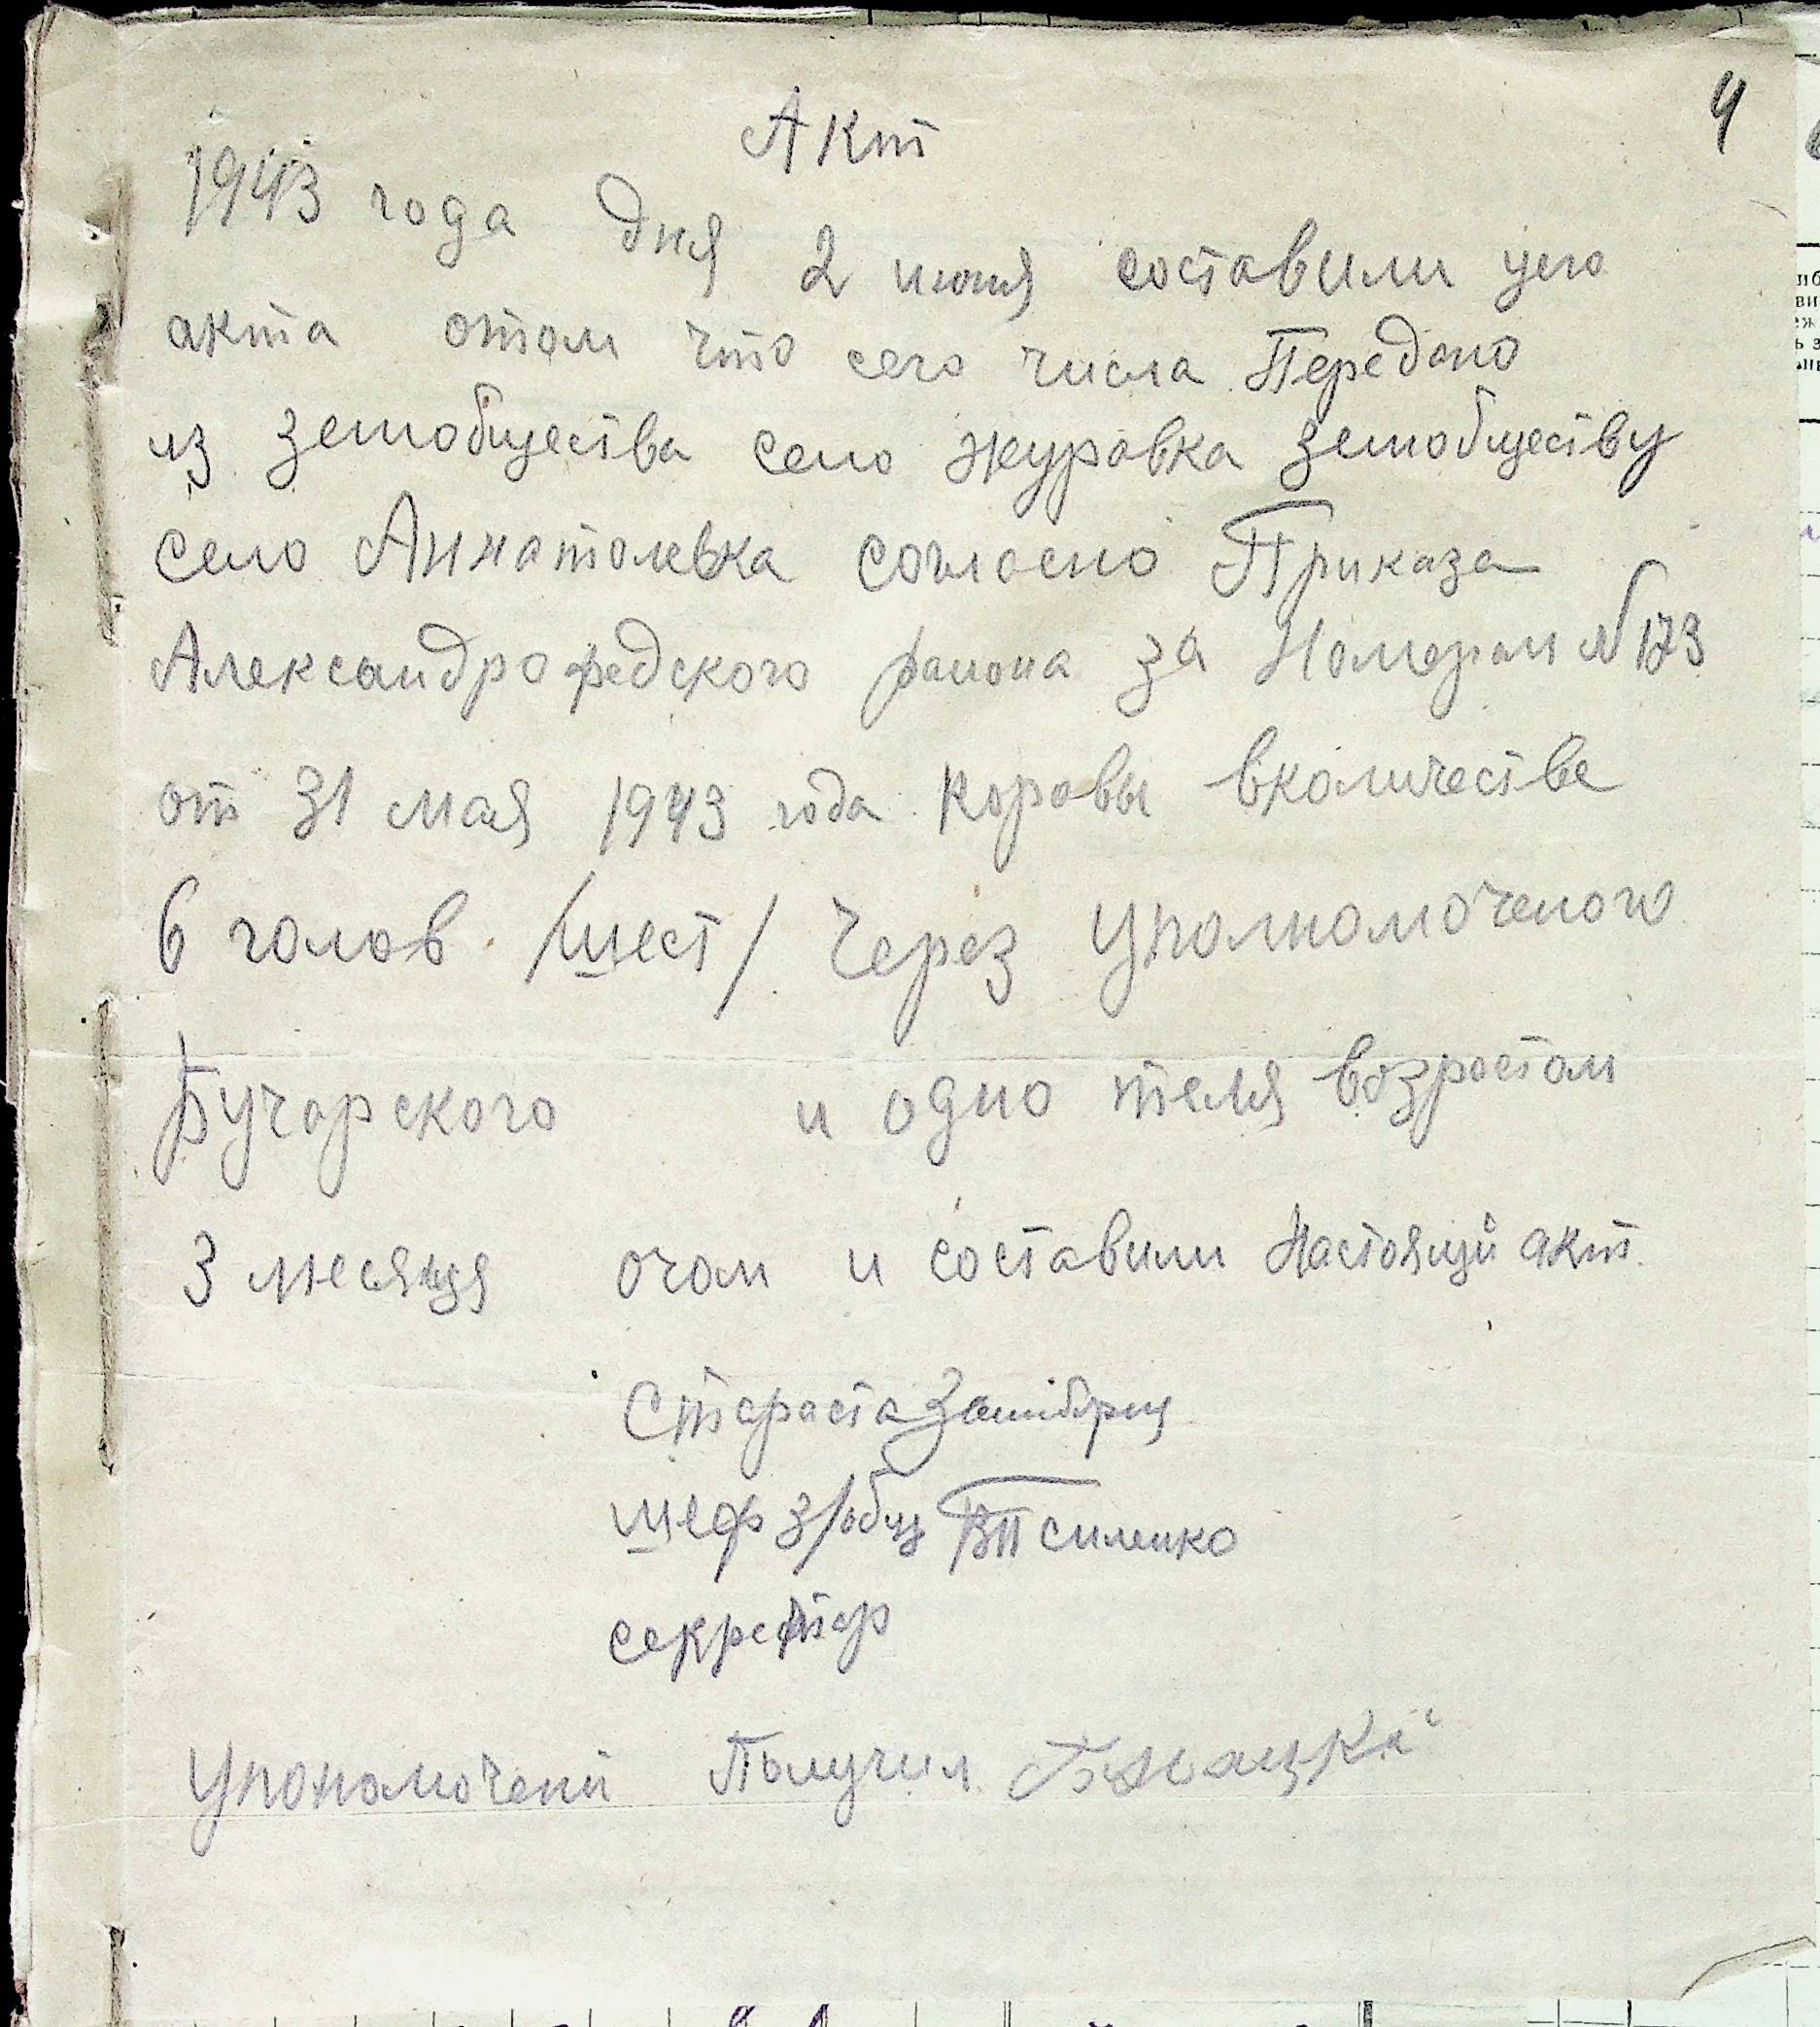 4
Акт
1943 года дня 2 июня составили цего
акта отом что сего числа Передано
из земобщества село журовка земобществу
село Аннатолевка согласно Приказа
Александрофедского раиона за Номером №173
от 31 мая 1943 года коровы вколичестве
6 голов /шест/ Через Уполномоченого
Бучарского и одно теля возростом
3 месяця очом и составили Настоящй акт.
Староста
шеф з/общ ВП силенко
секретар
Упономочений Получил